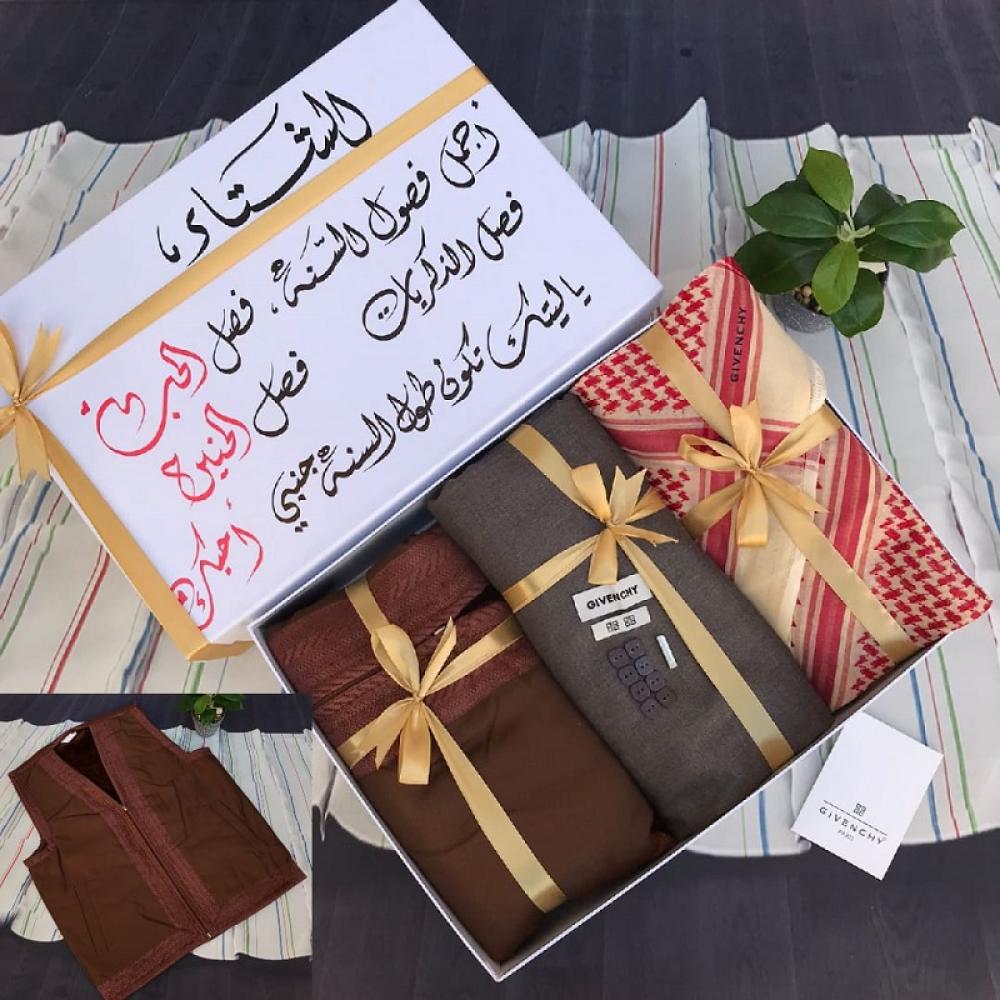 الشتاء
أجمل فصول السّنة، فصل الحب
فصل الذكريات فصل الحنين،
ياليتك تكون طول السنة جنبي أحبك
GIVENCHY
GIVENCHY
GIVENCHY
PARIS